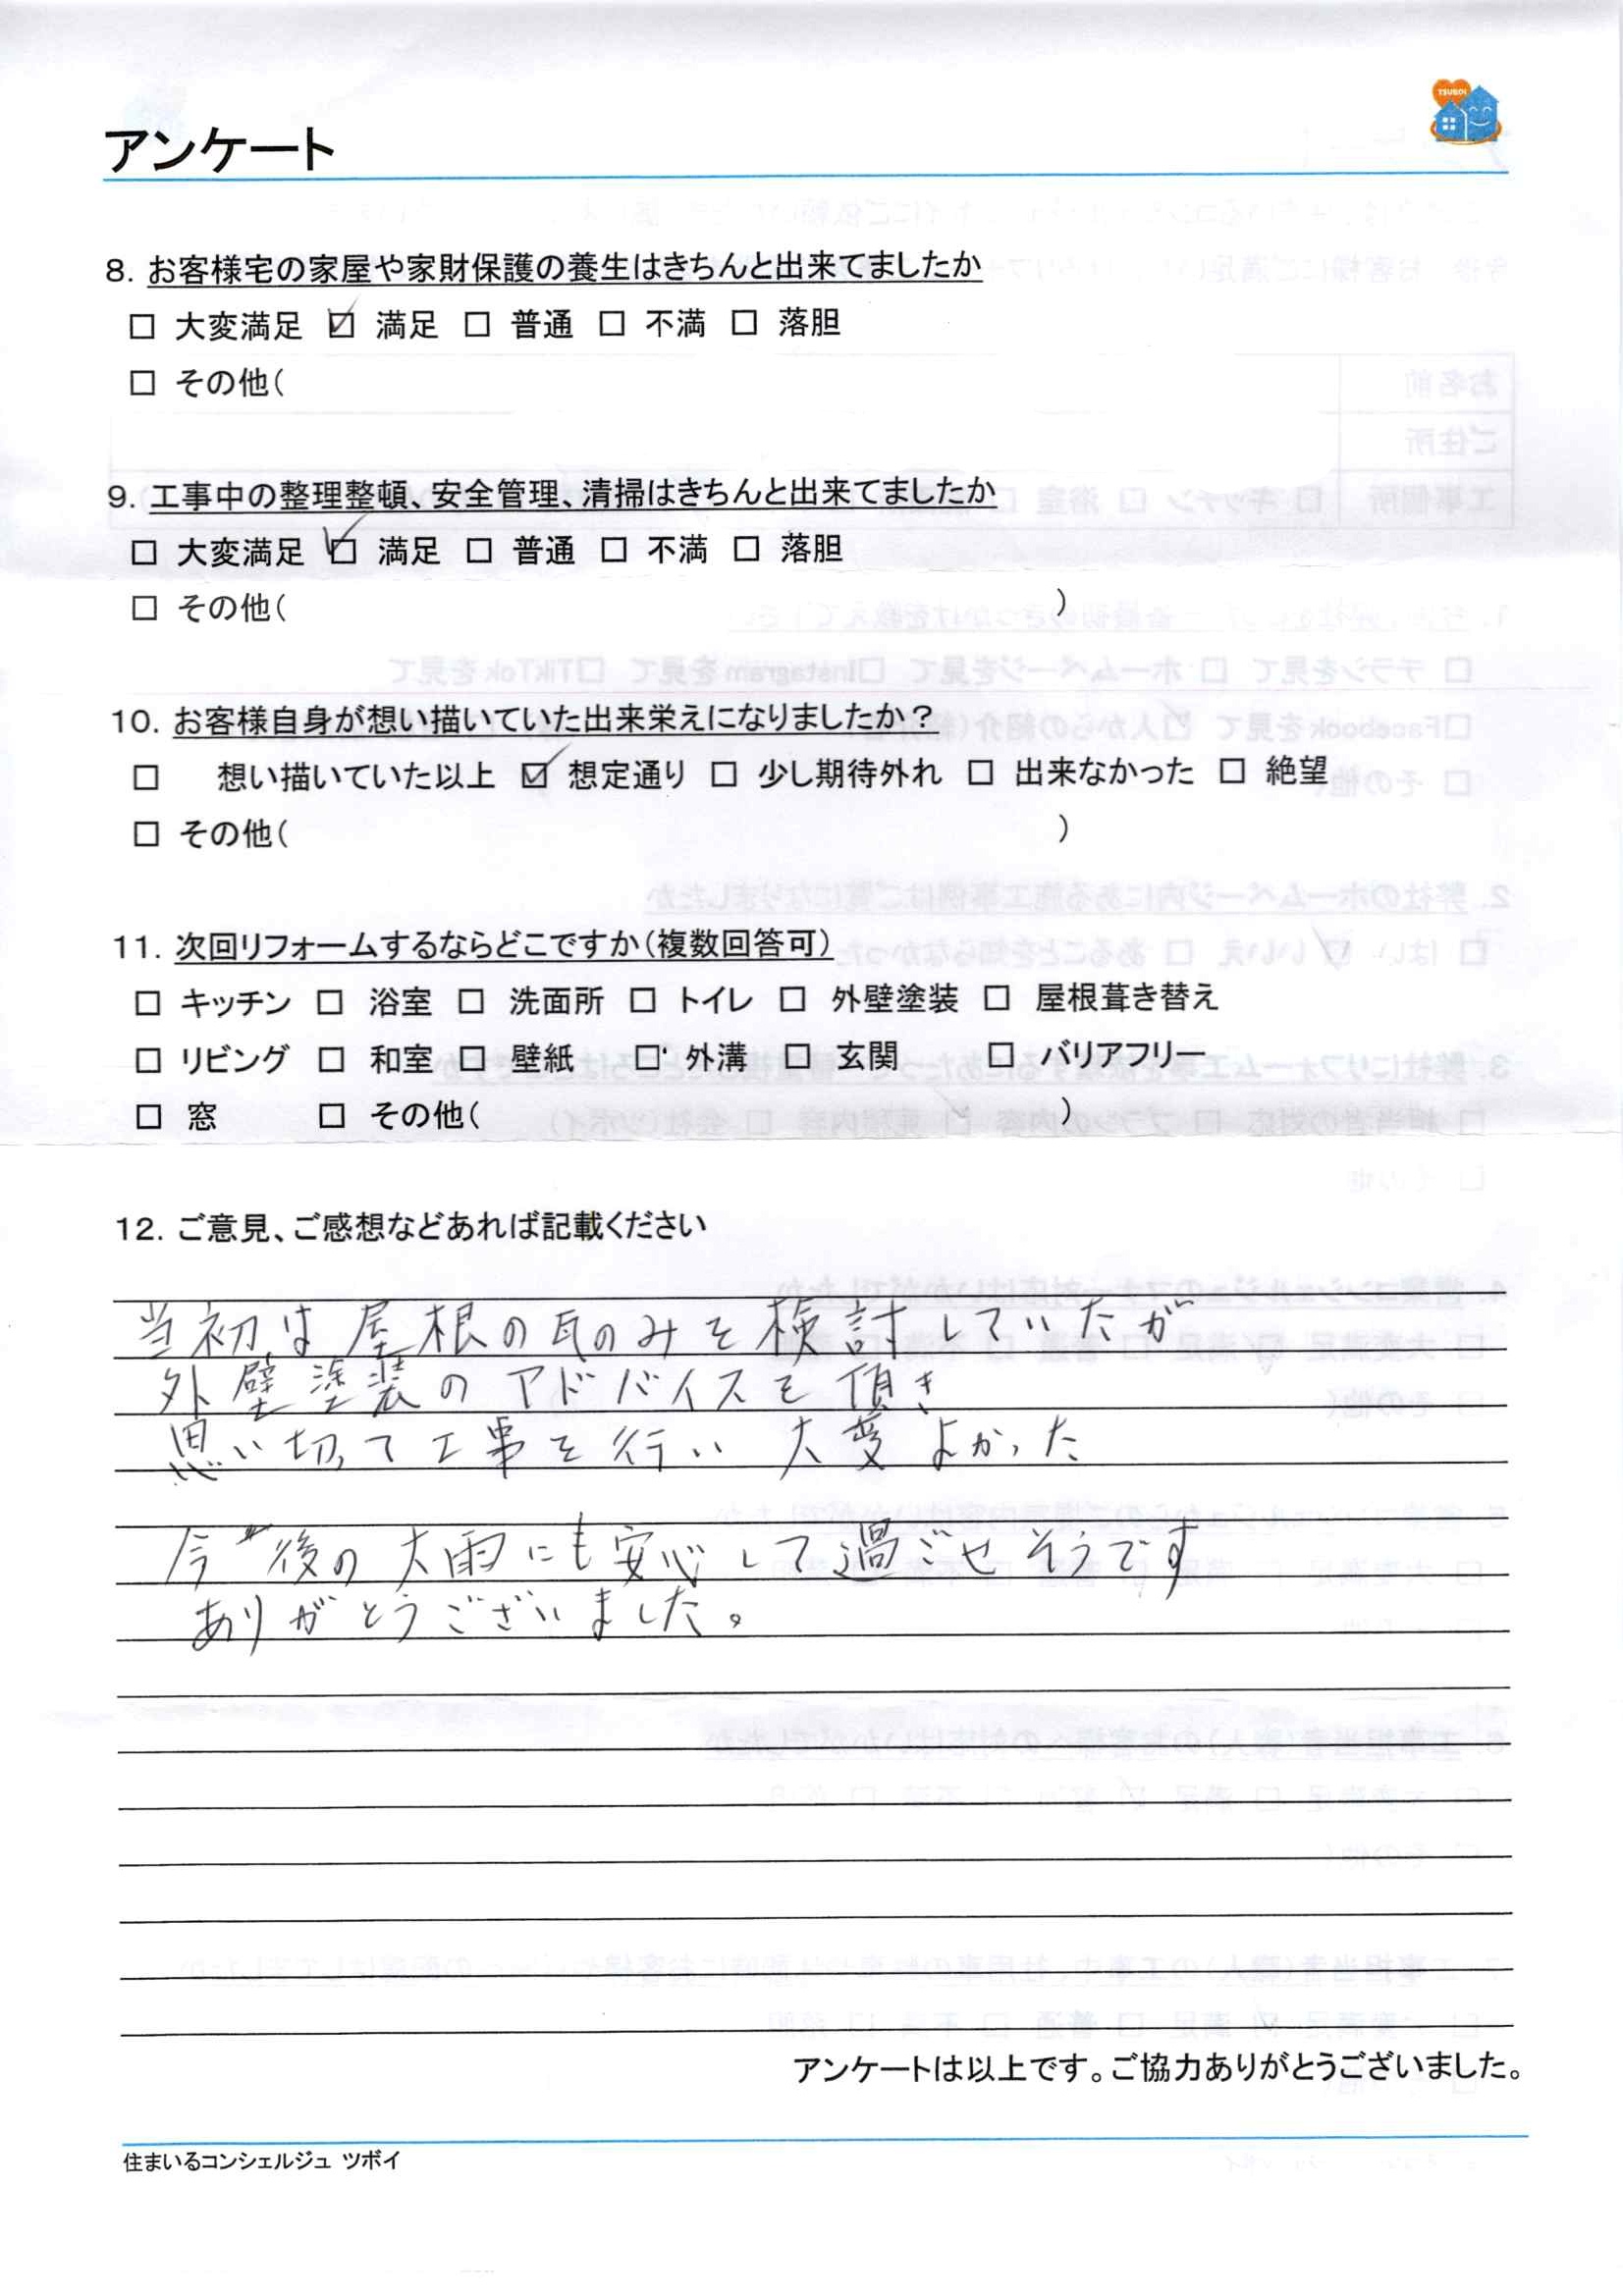 TSUBOI
アンケート
8. お客様宅の家屋や家財保護の養生はきちんと出来てましたか
□ 大変満足 ☑ 満足 □ 普通 □ 不満 □ 落胆
□ その他(
9. 工事中の整理整頓、安全管理、清掃はきちんと出来てましたか
□ 大変満足 ☑ 満足 □ 普通 □ 不満 □ 落胆
□ その他( )
10. お客様自身が想い描いていた出来栄えになりましたか?
□ 想い描いていた以上 ☑ 想定通り □ 少し期待外れ □ 出来なかった □ 絶望
□ その他( )
11. 次回リフォームするならどこですか(複数回答可)
□ キッチン □ 浴室 □ 洗面所 □ トイレ □ 外壁塗装 □ 屋根葺き替え
□ リビング □ 和室 □ 壁紙 □ 外溝 □ 玄関 □ バリアフリー
□ 窓 □ その他( )
12. ご意見、ご感想などあれば記載ください
当初は屋根の瓦のみを検討していたが
外壁塗装のアドバイスを頂き
思い切って工事を行い 大変よかった
今後の大雨にも安心して過ごせそうです
ありがとうございました。
アンケートは以上です。ご協力ありがとうございました。
住まいるコンシェルジュ ツボイ